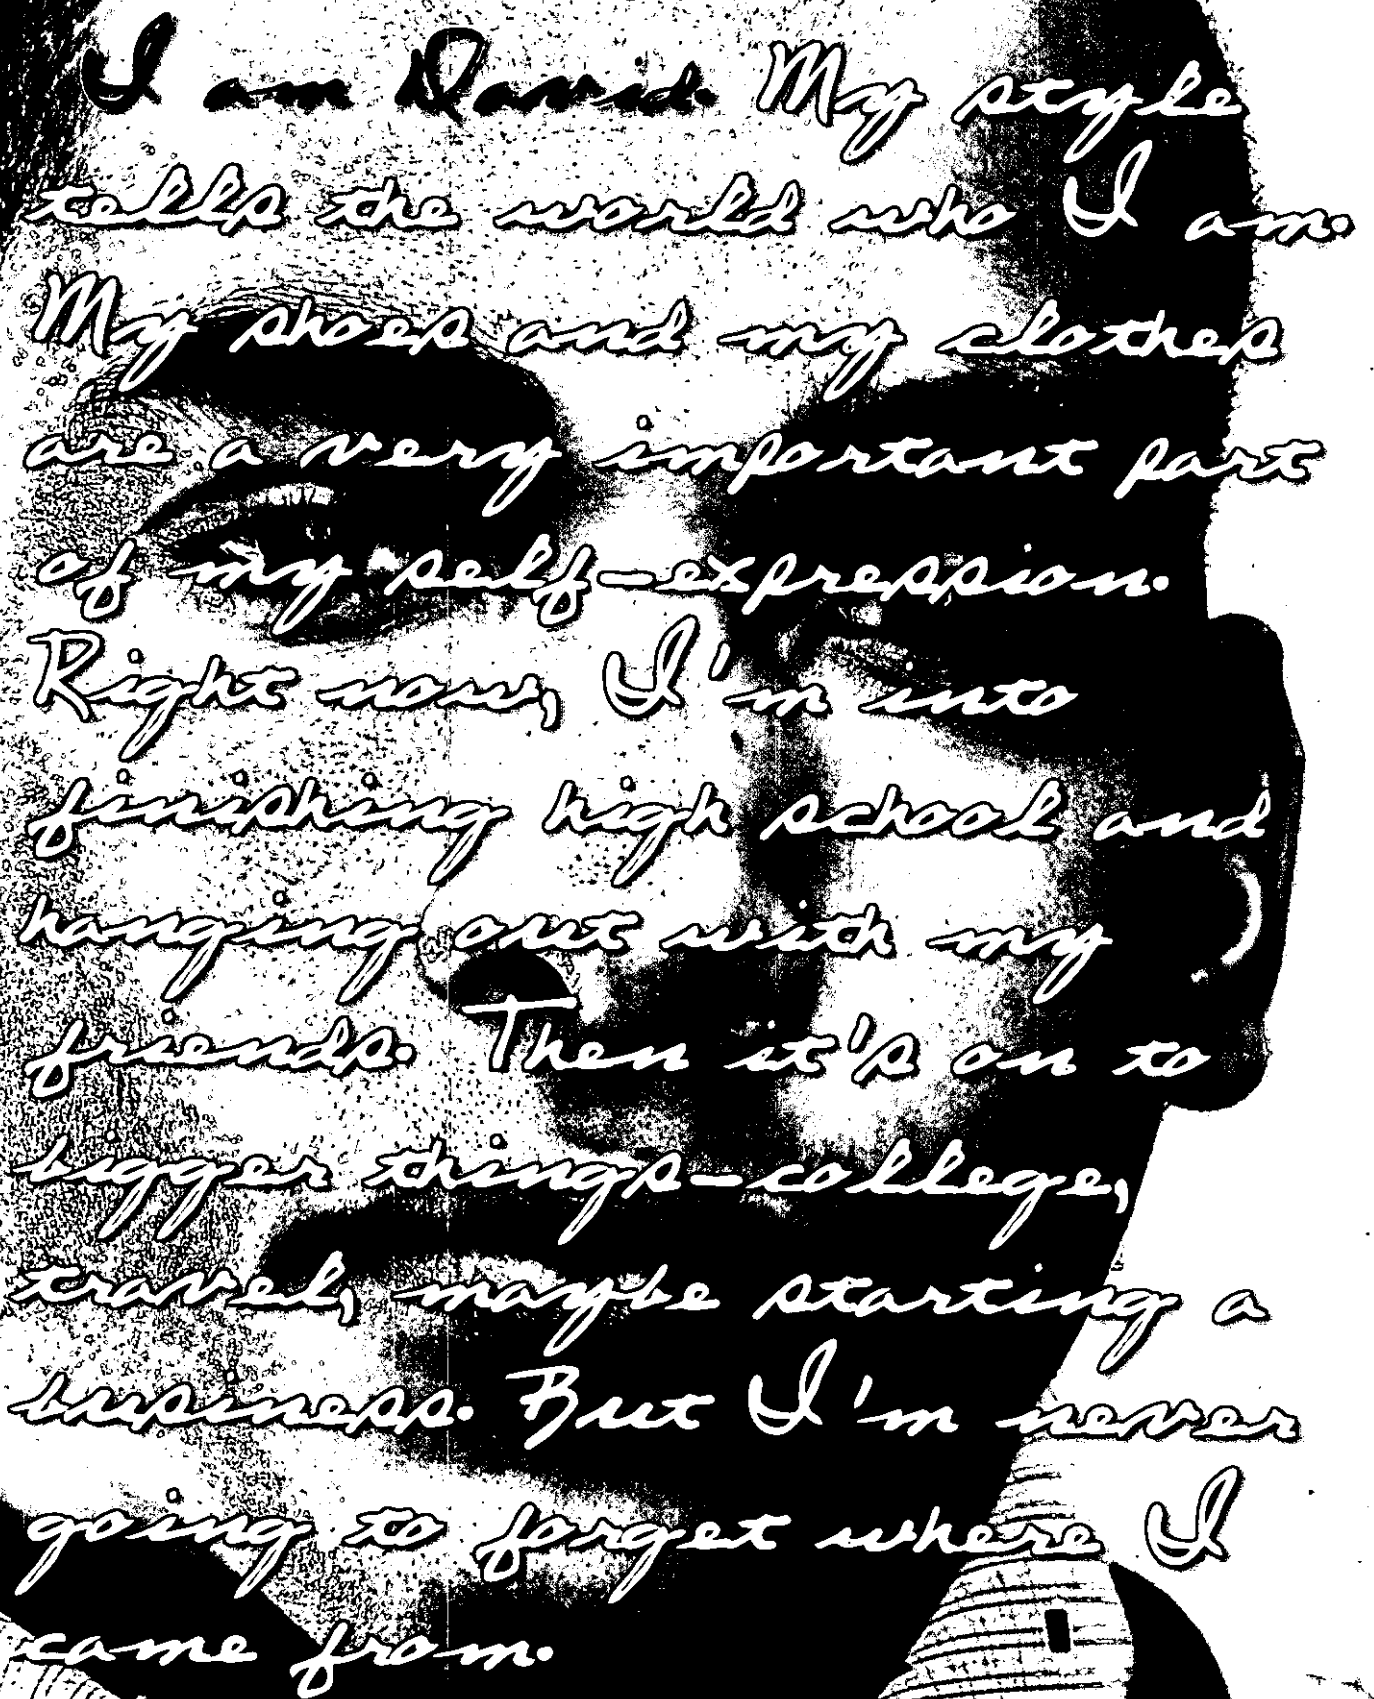 I am David. My style
tells the world who I am.
My shoes and my clothes
are a very important part
of my self-expression.
Right now, I'm into
finishing high school and
hanging out with my
friends. Then it's on to
bigger things-college,
travel, maybe starting a
business. But I'm never
going to forget where I
came from.